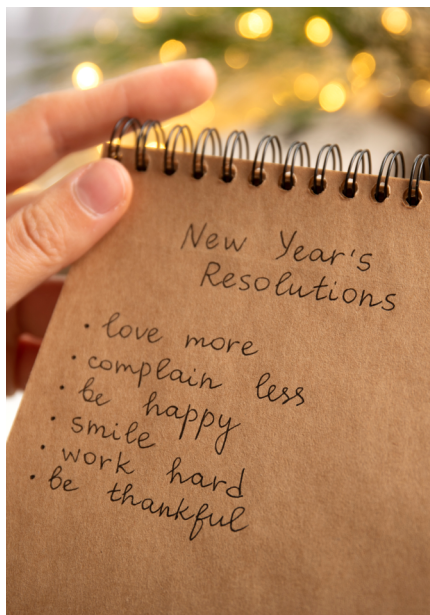 New Year's
Resolutions
· love more
· complain less
· be happy
· smile
· work hard
· be thankful